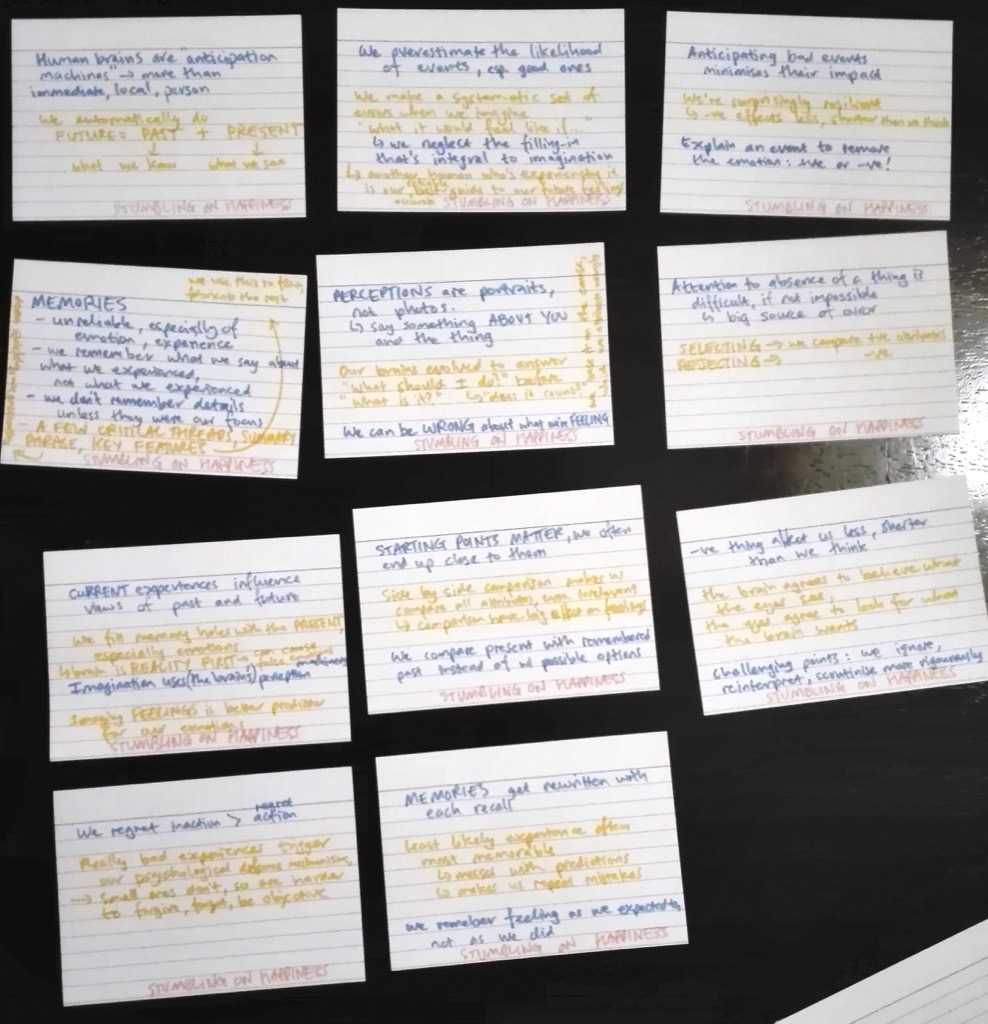 Human brains are "anticipation
machines" → more than
immediate, local, person
We automatically do
FUTURE = PAST + PRESENT
↓ ↓
what we know what we see
STUMBLING ON HAPPINESS
We overestimate the likelihood
of events, esp. good ones
We make a systematic set of
errors when we imagine
"what it would feel like if..."
↳ we neglect the filling-in
that's integral to imagination
↳ another human who's experiencing it
is our best guide to our future feelings
STUMBLING ON HAPPINESS
Anticipating bad events
minimises their impact
We're surprisingly resilient
↳ -ve effects less, shorter than we think
Explain an event to remove
the emotion: +ve or -ve!
STUMBLING ON HAPPINESS
we use this to
fabricate the rest
MEMORIES
- unreliable, especially of
emotion, experience
- we remember what we say about
what we experienced,
not what we experienced
- we don't remember details
unless they were our focus
- A FEW CRITICAL THREADS, SUMMARY
PHRASE, KEY FEATURES
STUMBLING ON HAPPINESS
PERCEPTIONS are portraits,
not photos.
↳ say something ABOUT YOU
and the thing
Our brains evolved to answer
"What should I do?" before
"What is it?" ↳ "does it count?"
We can be WRONG about what we're FEELING
STUMBLING ON HAPPINESS
Attention to absence of a thing is
difficult, if not impossible
↳ big source of error
SELECTING → we compare +ve attributes
REJECTING → -ve
STUMBLING ON HAPPINESS
CURRENT experiences influence
views of past and future
We fill memory holes with the PRESENT,
especially emotions
↳ brain is REALITY FIRST
Imagination uses (the brain's) perception machinery
Imaging FEELINGS is better predictor
for our emotions
STUMBLING ON HAPPINESS
STARTING POINTS MATTER, we often
end up close to them
Side by side comparison makes us
compare all attributes, even irrelevant
↳ comparison have big effect on feelings
We compare present with remembered
past instead of w/ possible options
STUMBLING ON HAPPINESS
-ve thing affect us less, shorter
than we think
the brain agrees to believe what
the eyes see,
the eyes agree to look for what
the brain wants
Challenging points: we ignore,
reinterpret, scrutinise more rigourously
STUMBLING ON HAPPINESS
We regret inaction > regret action
Really bad experiences trigger
our psychological defense mechanisms,
→ small ones don't, so are harder
to forgive, forget, be objective
STUMBLING ON HAPPINESS
MEMORIES get rewritten with
each recall
Least likely experience often
most memorable
↳ messes with predictions
↳ makes us repeat mistakes
we remeber feeling as we expected to,
not as we did
STUMBLING ON HAPPINESS